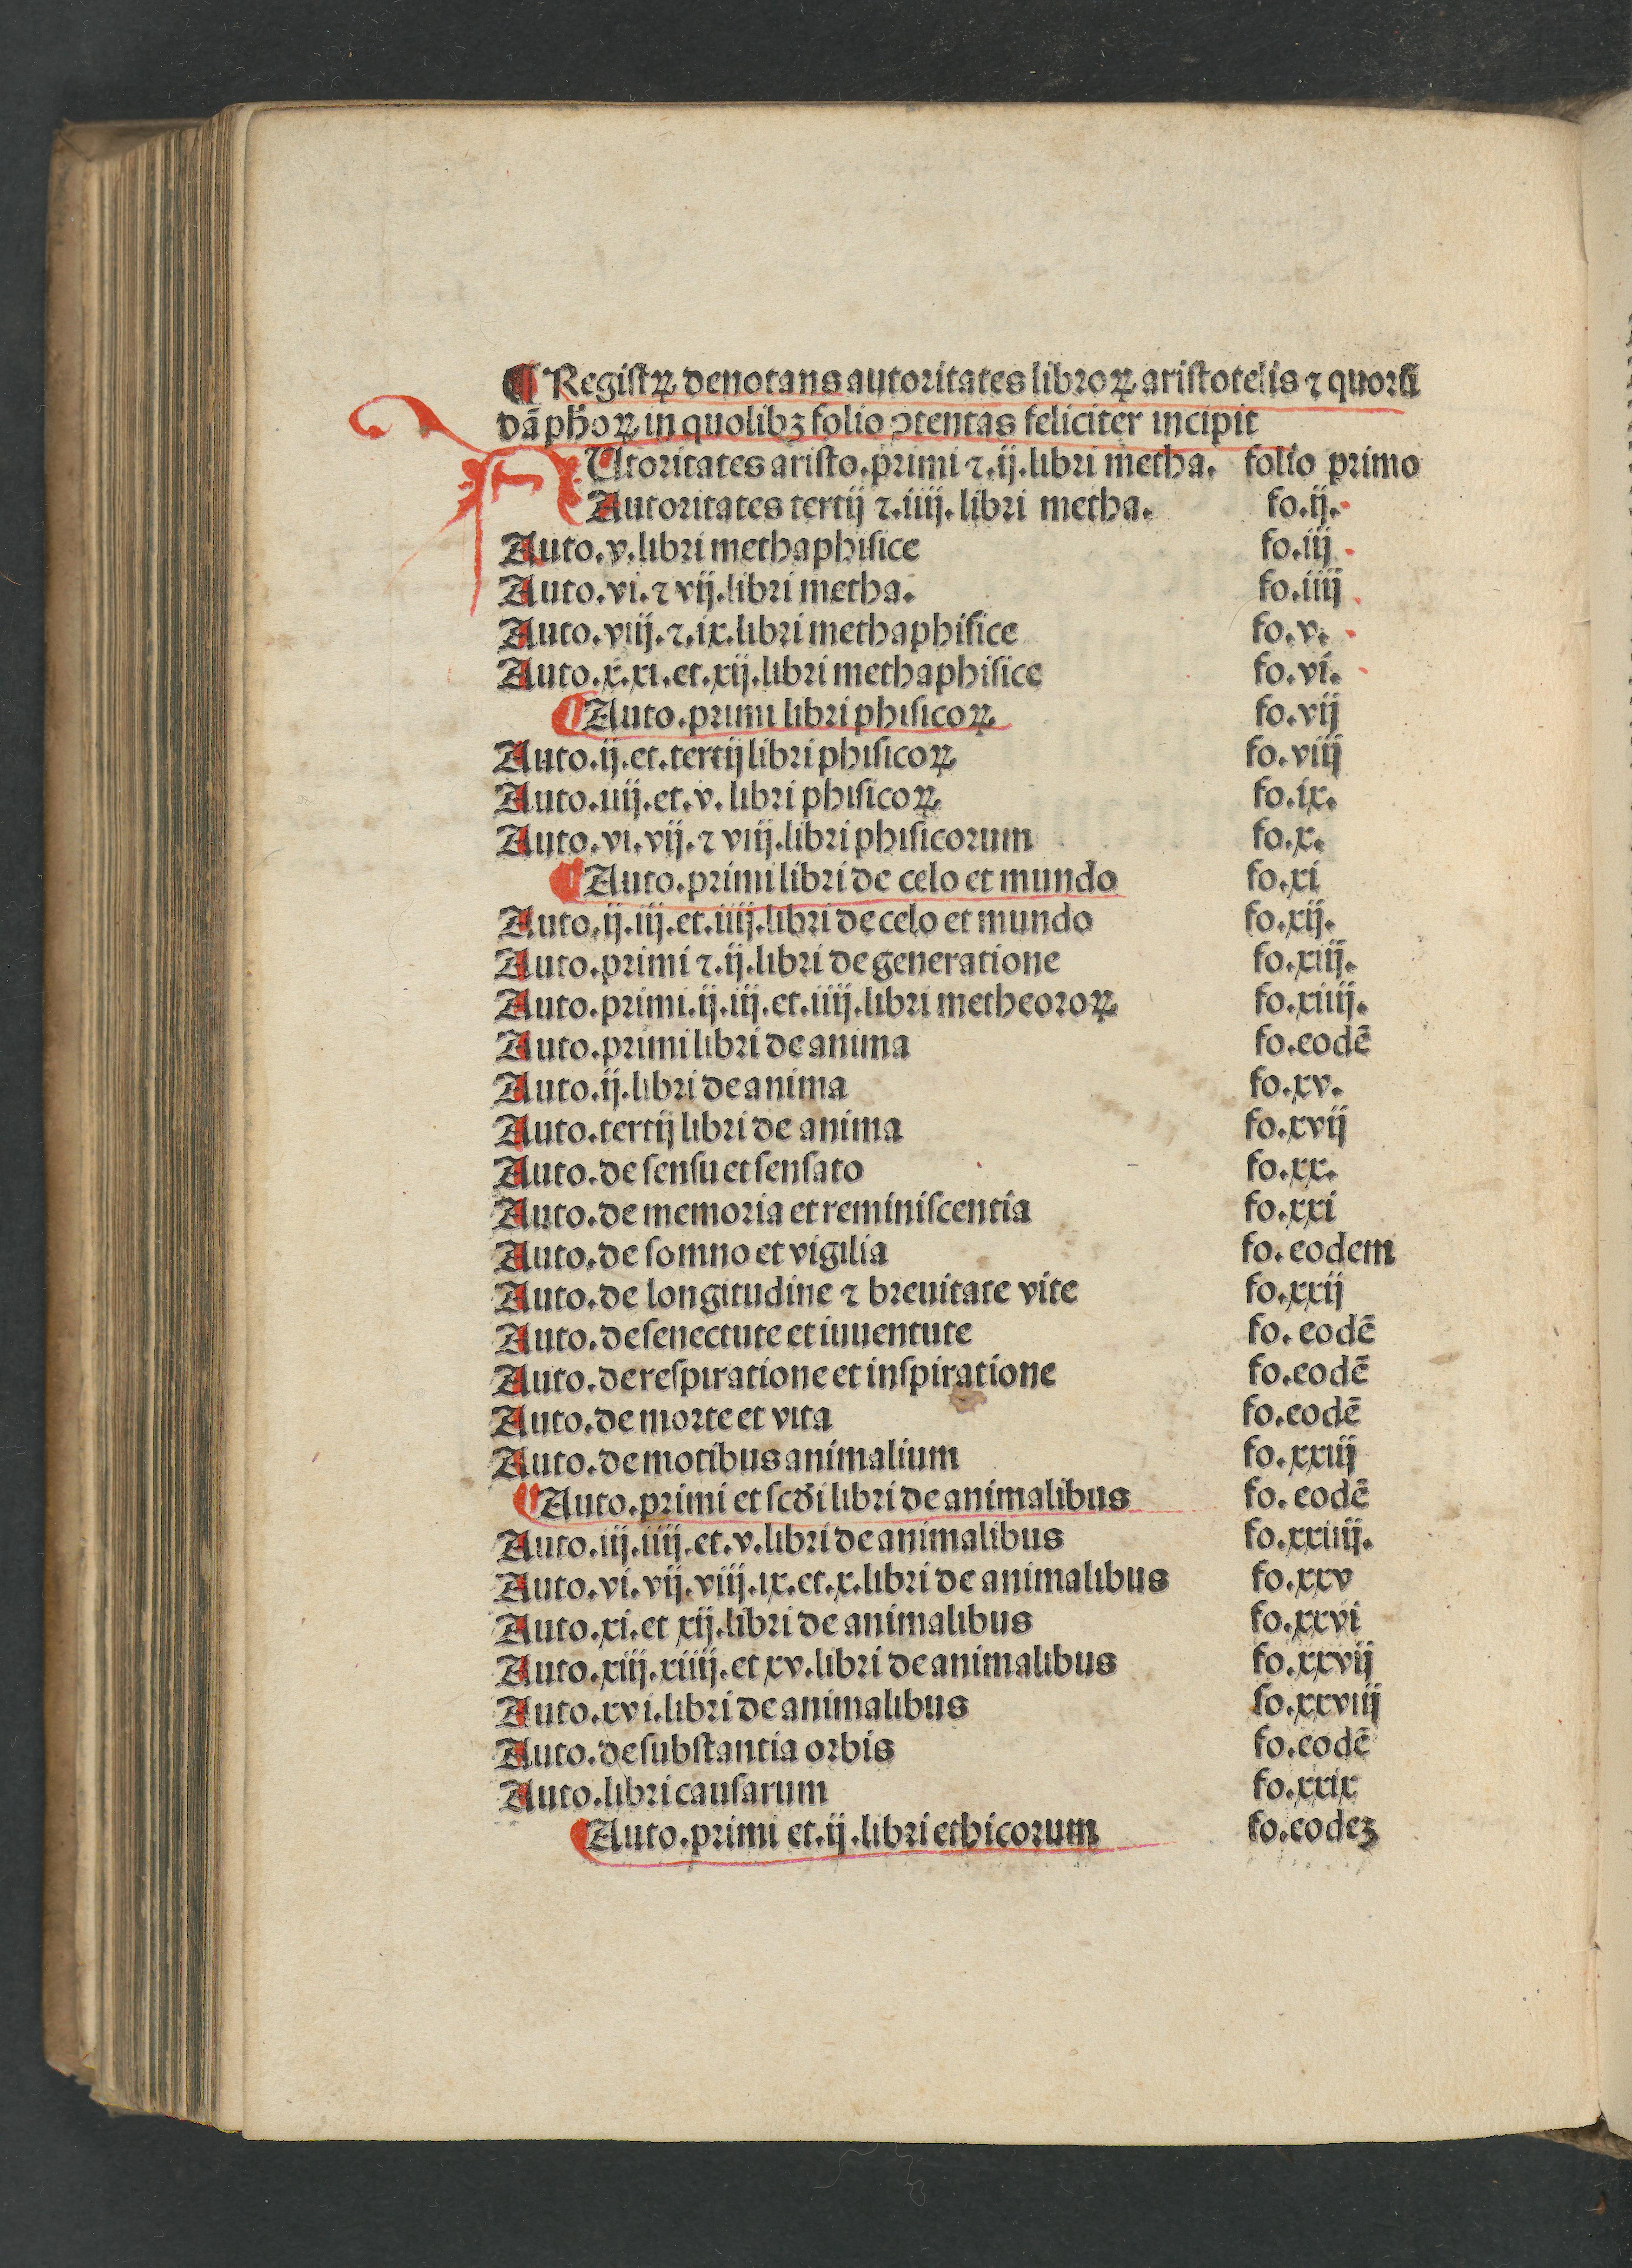 ¶ Regiſtꝝ denotans autoritates libroꝝ ariſtotelis ⁊ quorū
dā ph̄oꝝ in quolibꝫ folio ↄtentas feliciter incipit
AUtoritates ariſto.primi ⁊.ij.libri metha. folio primo
Autoritates tertij ⁊.iiij.libri metha. fo.ij.
Auto.v.libri methaphiſice fo.iij
Auto.vi.⁊ vij.libri metha. fo.iiij
Auto.viij.⁊.ix.libri methaphiſice fo.v.
Auto.x.xi.et.xij.libri methaphiſice fo.vi.
¶ Auto.primi libri phiſicoꝝ fo.vij
Auto.ij.et.tertij libri phiſicoꝝ fo.viij
Auto.iiij.et.v.libri phiſicoꝝ fo.ix.
Auto.vi.vij.⁊ viij.libri phiſicorum fo.x.
¶ Auto.primi libri de celo et mundo fo.xi
Auto.ij.iij.et.iiij.libri de celo et mundo fo.xij.
Auto.primi ⁊.ij.libri de generatione fo.xiij.
Auto.primi.ij.iij.et.iiij.libri metheoroꝝ fo.xiiij.
Auto.primi libri de anima fo.eodē
Auto.ij.libri de anima fo.xv.
Auto.tertij libri de anima fo.xvij
Auto.de ſenſu et ſenſato fo.xx.
Auto.de memoria et reminiſcentia fo.xxi
Auto.de ſomno et vigilia fo.eodem
Auto.de longitudine ⁊ breuitate vite fo.xxij
Auto.de ſenectute et iuuentute fo.eodē
Auto.de reſpiratione et inſpiratione fo.eodē
Auto.de morte et vita fo.eodē
Auto.de motibus animalium fo.xxiij
¶ Auto.primi et ſcd̄i libri de animalibus fo.eodē
Auto.iij.iiij.et.v.libri de animalibus fo.xxiiij.
Auto.vi.vij.viij.ix.et.x.libri de animalibus fo.xxv
Auto.xi.et xij.libri de animalibus fo.xxvi
Auto.xiij.xiiij.et xv.libri de animalibus fo.xxvij
Auto.xvi.libri de animalibus fo.xxviij
Auto.de ſubſtantia orbis fo.eodē
Auto.libri cauſarum fo.xxix
¶ Auto.primi et.ij.libri ethicorum fo.eodeꝫ